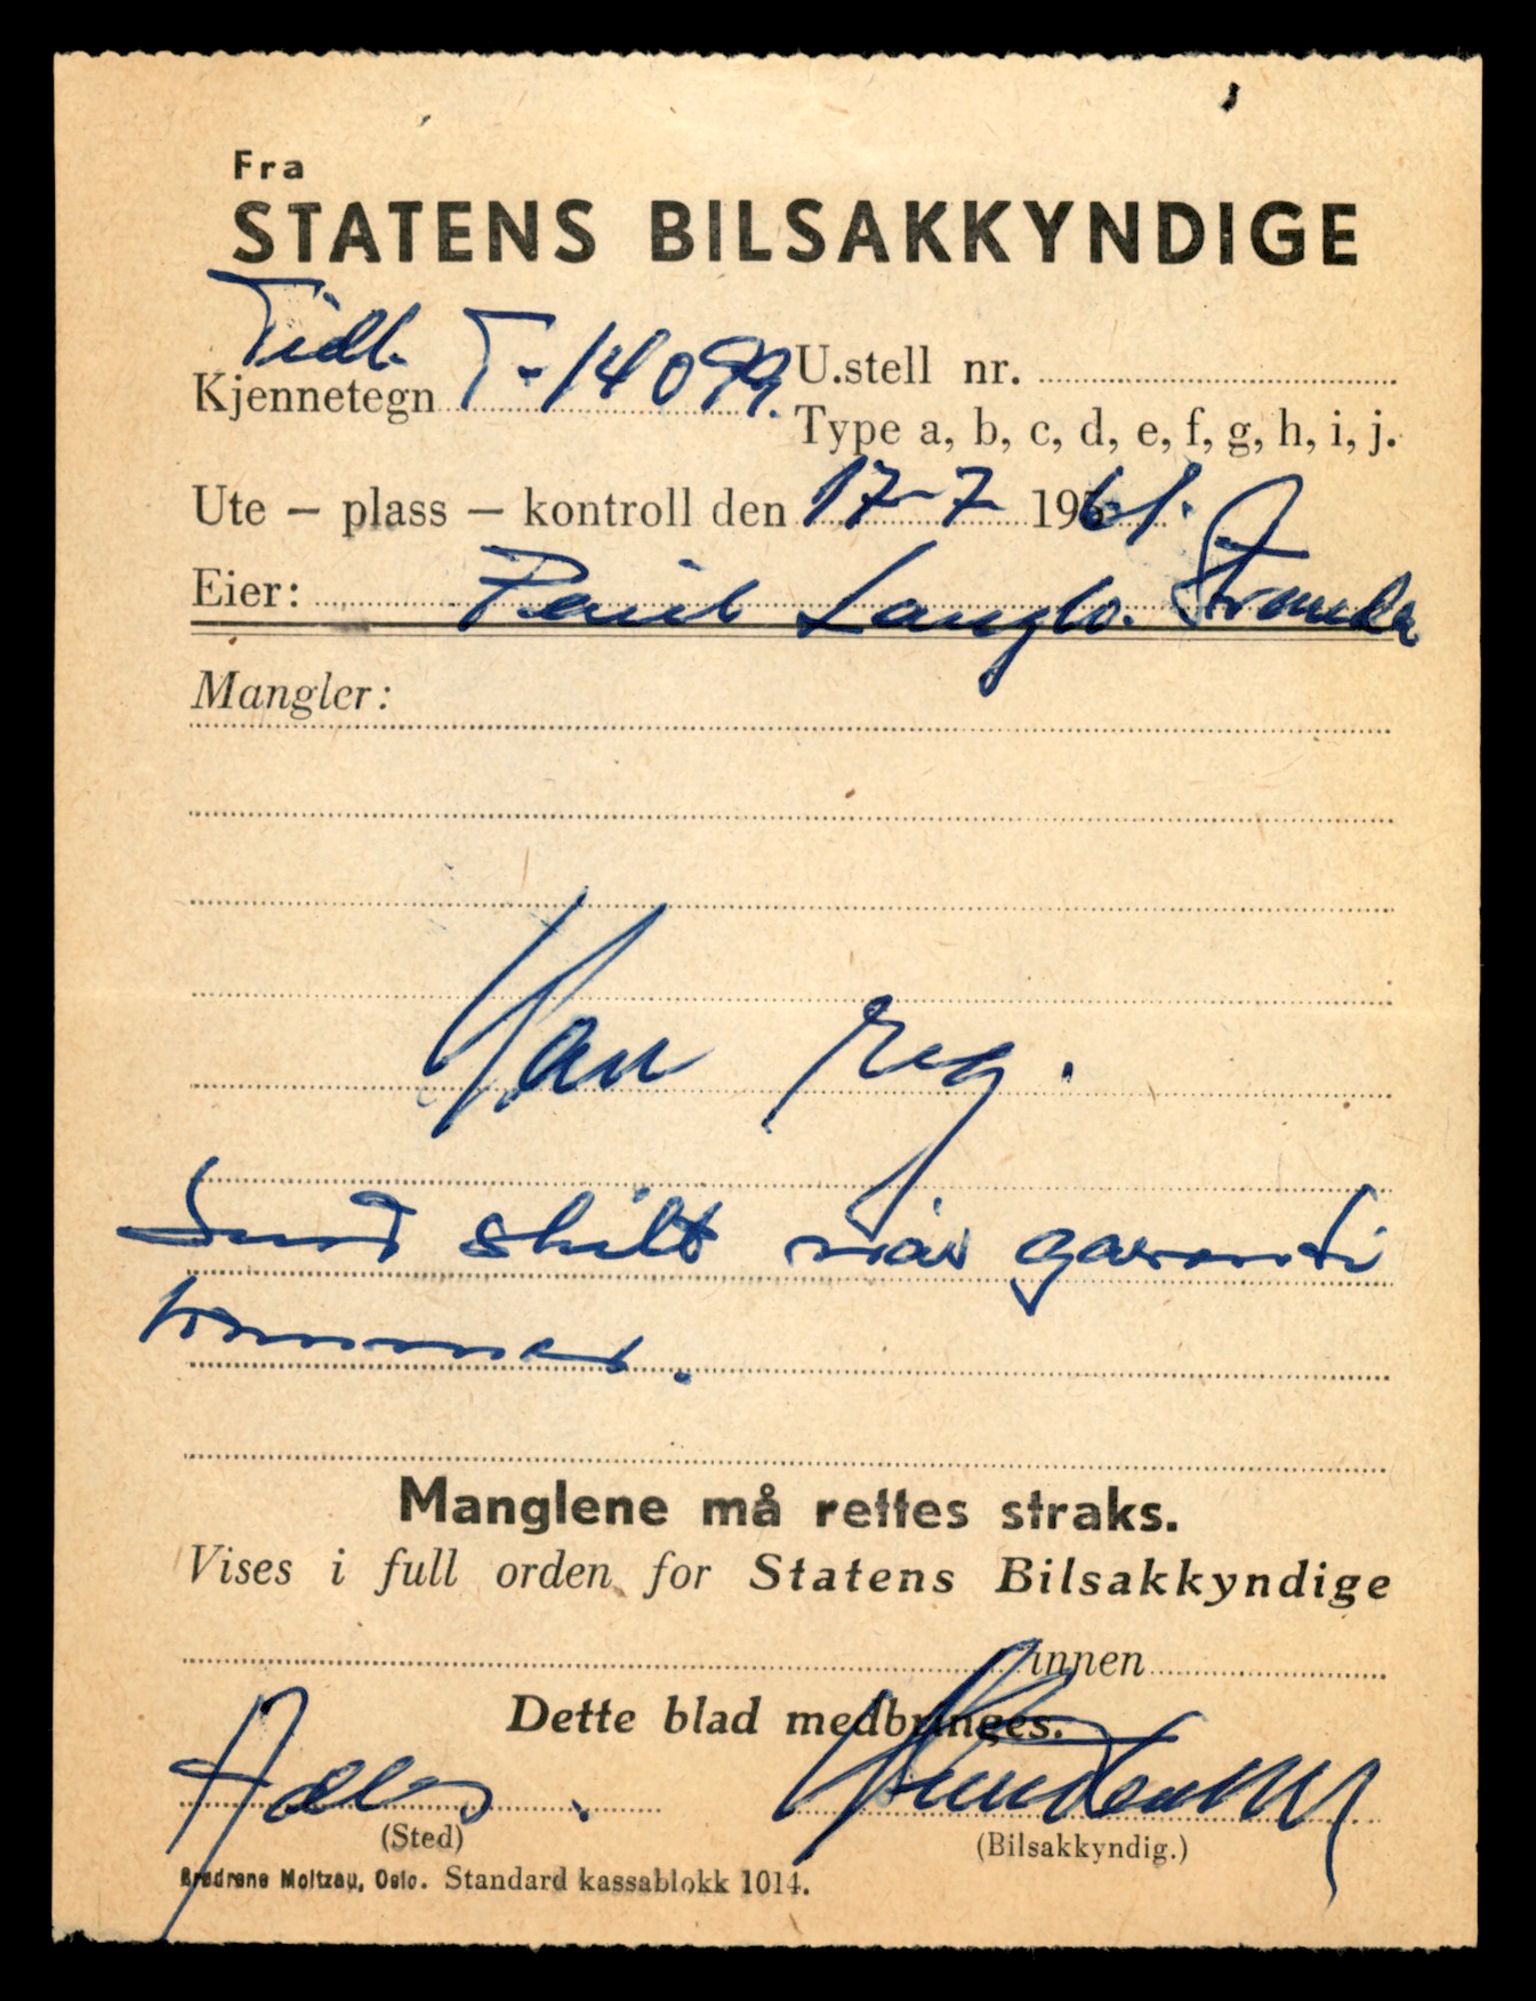 Fra
STATENS BILSAKKYNDIGE
Tidl.
Kjennetegn T-14099. U.stell nr.
Type a, b, c, d, e, f, g, h, i, j.
Ute – plass – kontroll den 17-7 1961.
Eier: Langlo. Stranda
Mangler:
Kan reg.
Send skilt når garanti
kommer.
Manglene må rettes straks.
Vises i full orden for Statens Bilsakkyndige
innen
Dette blad medbringes.
(Sted)
(Bilsakkyndig.)
Brødrene Moltzau, Oslo. Standard kassablokk 1014.